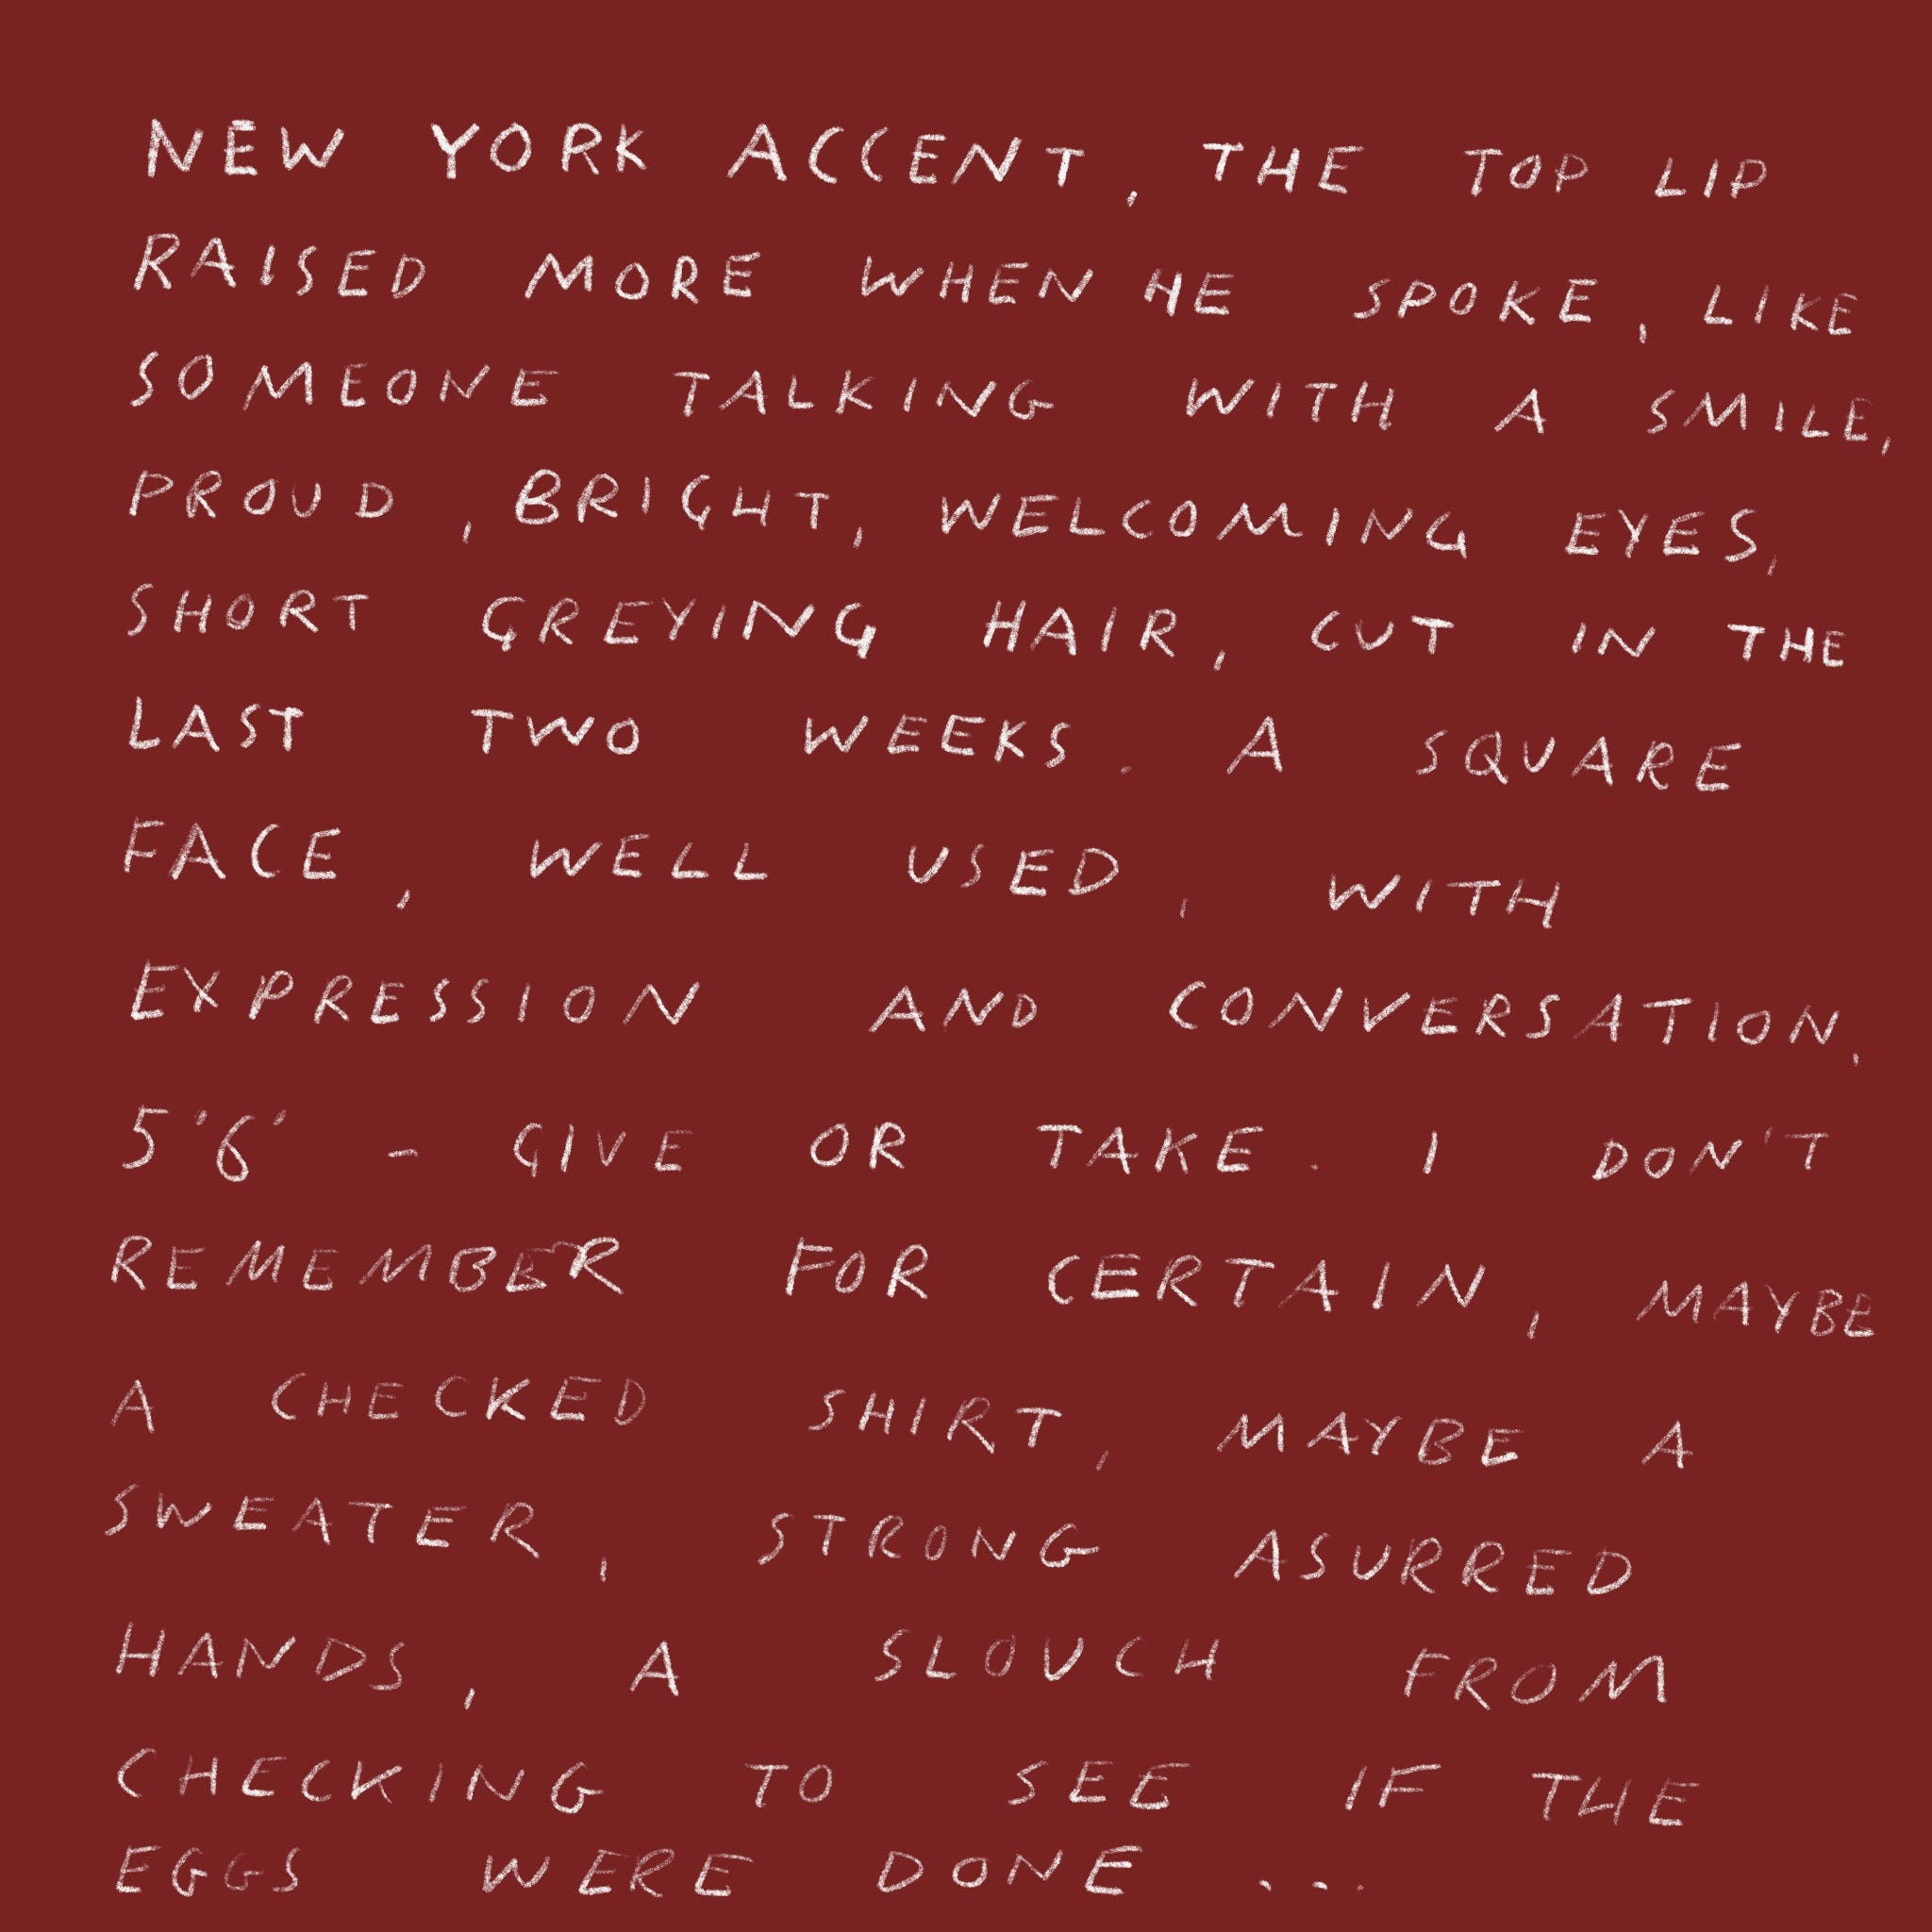 NEW YORK ACCENT, THE TOP LIP
RAISED MORE WHEN HE SPOKE, LIKE
SOMEONE TALKING WITH A SMILE,
PROUD, BRIGHT, WELCOMING EYES,
SHORT GREYING HAIR, CUT IN THE
LAST TWO WEEKS. A SQUARE
FACE, WELL USED, WITH
EXPRESSION AND CONVERSATION.
5'6' - GIVE OR TAKE. I DON'T
REMEMBER FOR CERTAIN, MAYBE
A CHECKED SHIRT, MAYBE A
SWEATER, STRONG ASURRED
HANDS, A SLOUCH FROM
CHECKING TO SEE IF THE
EGGS WERE DONE ...